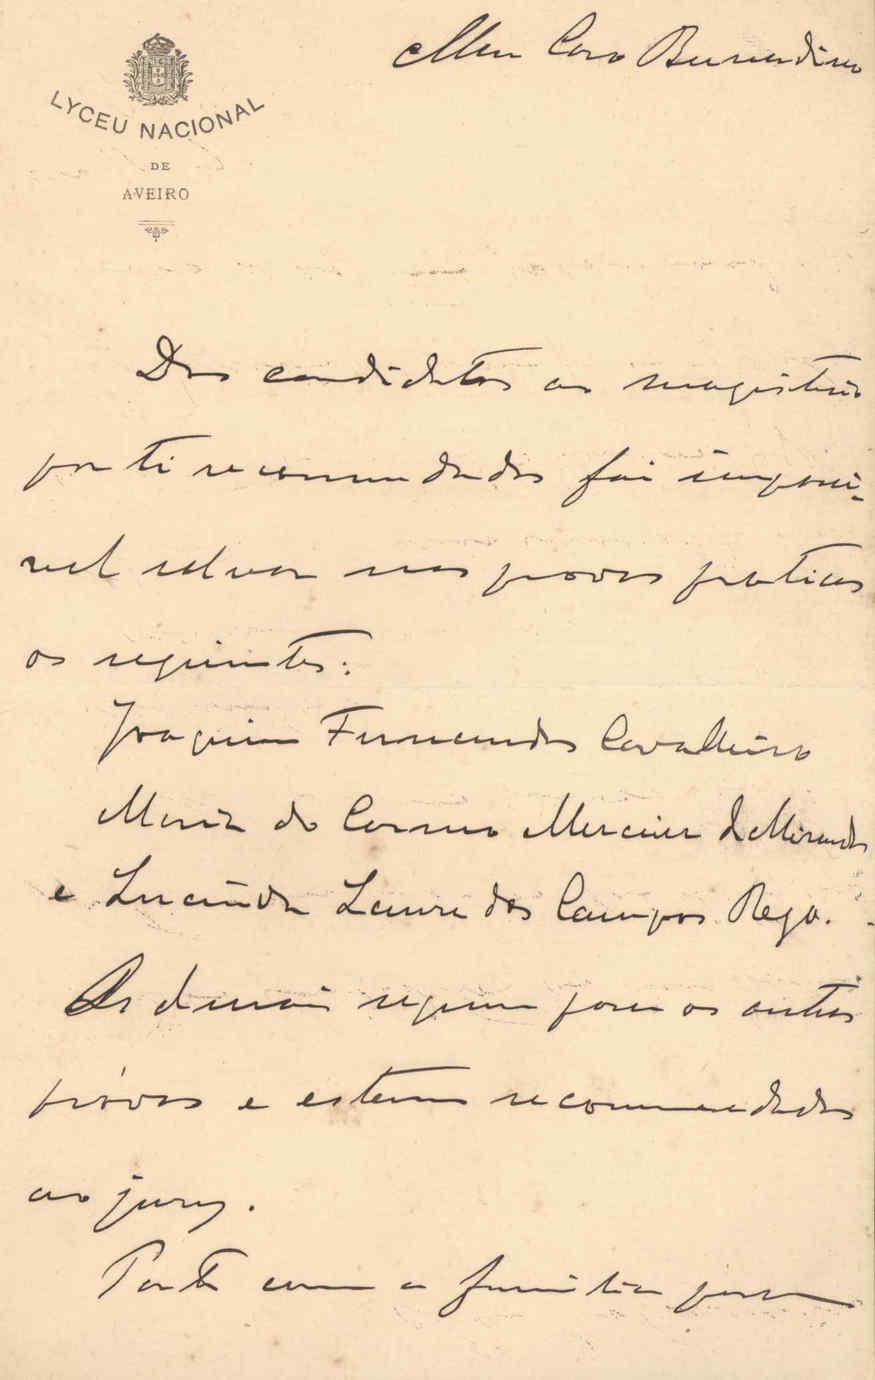 LYCEU NACIONAL
DE
AVEIRO
Meu Caro Bernardino
Dos candidatos ao magisterio
por ti recommendados foi impossi-
vel salvar nas provas praticas
os seguintes:
Joaquim Fernandes Cavalleiro
Maria do Carmo Mercier de Miranda
e Lucinda Laura dos Campos Rego.
Os demais seguem para as outras
próvas e estam recommendados
ao jury.
Parto com a familia para